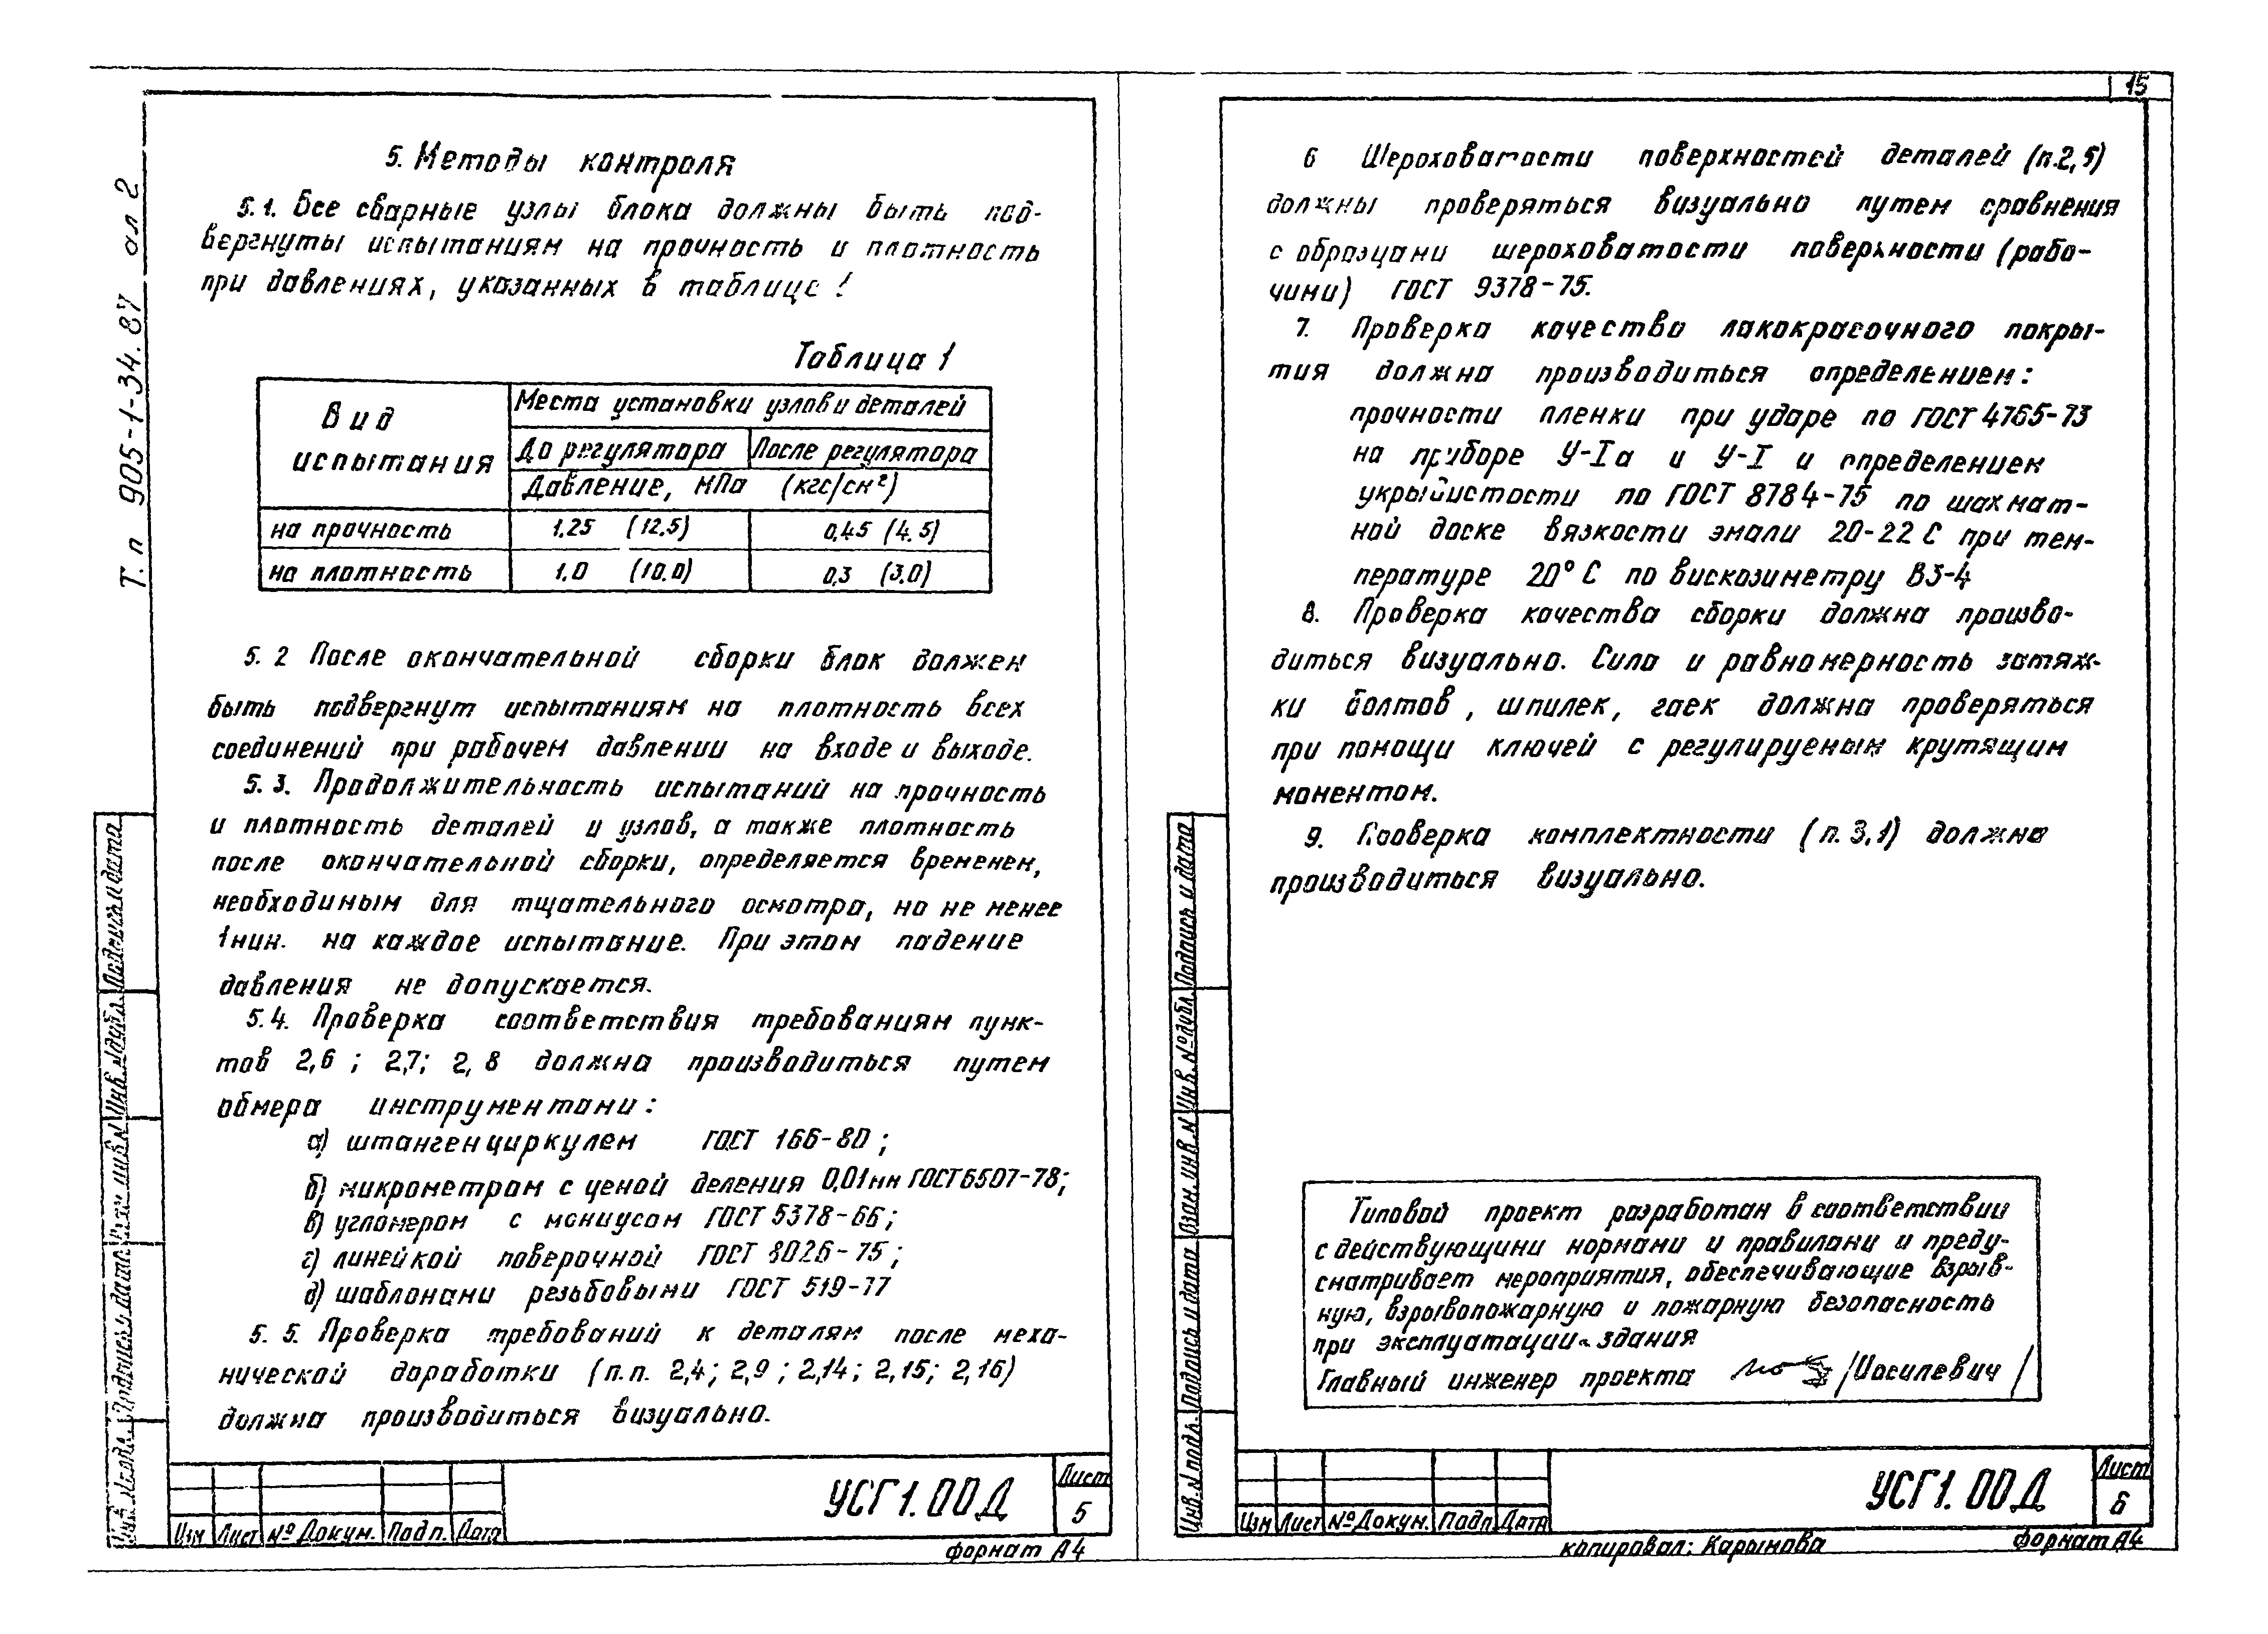 15
Т.п 905-1-34.87 ал 2
5. Методы контроля
5.1. Все сварные узлы блока должны быть под-
вергнуты испытаниям на прочность и плотность
при давлениях, указанных в таблице 1
Таблица 1
Вид испытания
Места установки узлов и деталей
До регулятора После регулятора
Давление, МПа (кгс/см²)
на прочность 1.25 (12.5) 0,45 (4.5)
на плотность 1.0 (10.0) 0,3 (3.0)
5.2 После окончательной сборки блок должен
быть подвергнут испытаниям на плотность всех
соединений при рабочем давлении на входе и выходе.
5.3. Продолжительность испытаний на прочность
и плотность деталей и узлов, а также плотность
после окончательной сборки, определяется временем,
необходимым для тщательного осмотра, но не менее
1мин. на каждое испытание. При этом падение
давления не допускается.
5.4. Проверка соответствия требованиям пунк-
тов 2,6 ; 2,7; 2,8 должна производиться путем
обмера инструментами:
а) штангенциркулем ГОСТ 166-80 ;
б) микрометром с ценой деления 0,01мм ГОСТ6507-78;
в) угломером с нониусом ГОСТ 5378-66;
г) линейкой поверочной ГОСТ 8026-75 ;
д) шаблонами резьбовыми ГОСТ 519-77
5.5. Проверка требований к деталям после меха-
нической доработки (п.п. 2,4; 2,9 ; 2,14; 2,15; 2,16)
должна производиться визуально.
Инв. № подл. Подпись и дата Взам. инв. № Инв. № дубл. Подпись и дата
Изм Лист № Докум. Подп. Дата
УСГ1.00Д
Лист
5
формат А4
6 Шероховатости поверхностей деталей (п.2,5)
должны проверяться визуально путем сравнения
с образцами шероховатости поверхности (рабо-
чими) ГОСТ 9378-75.
7. Проверка качества лакокрасочного покры-
тия должна производиться определением:
прочности пленки при ударе по ГОСТ 4765-73
на приборе У-Iа и У-I и определением
укрывистости по ГОСТ 8784-75 по шахмат-
ной доске вязкости эмали 20-22 С при тем-
пературе 20° С по вискозиметру ВЗ-4
8. Проверка качества сборки должна произво-
диться визуально. Сила и равномерность затяж-
ки болтов, шпилек, гаек должна проверяться
при помощи ключей с регулируемым крутящим
моментом.
9. Проверка комплектности (п. 3,1) должна
производиться визуально.
Типовой проект разработан в соответствии
с действующими нормами и правилами и преду-
сматривает мероприятия, обеспечивающие взрыв-
ную, взрывопожарную и пожарную безопасность
при эксплуатации здания
Главный инженер проекта /Иосилевич/
Инв. № подл. Подпись и дата Взам. инв. № Инв. № дубл. Подпись и дата
Изм Лист № Докум. Подп. Дата
УСГ1.00Д
Лист
6
копировал: Карымова формат А4